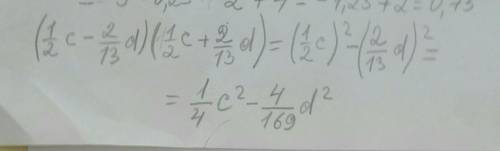 = -1,25 + 2 = 0,75
(1/2 c - 2/13 d)(1/2 c + 2/13 d) = (1/2 c)² - (2/13 d)² =
= 1/4 c² - 4/169 d²